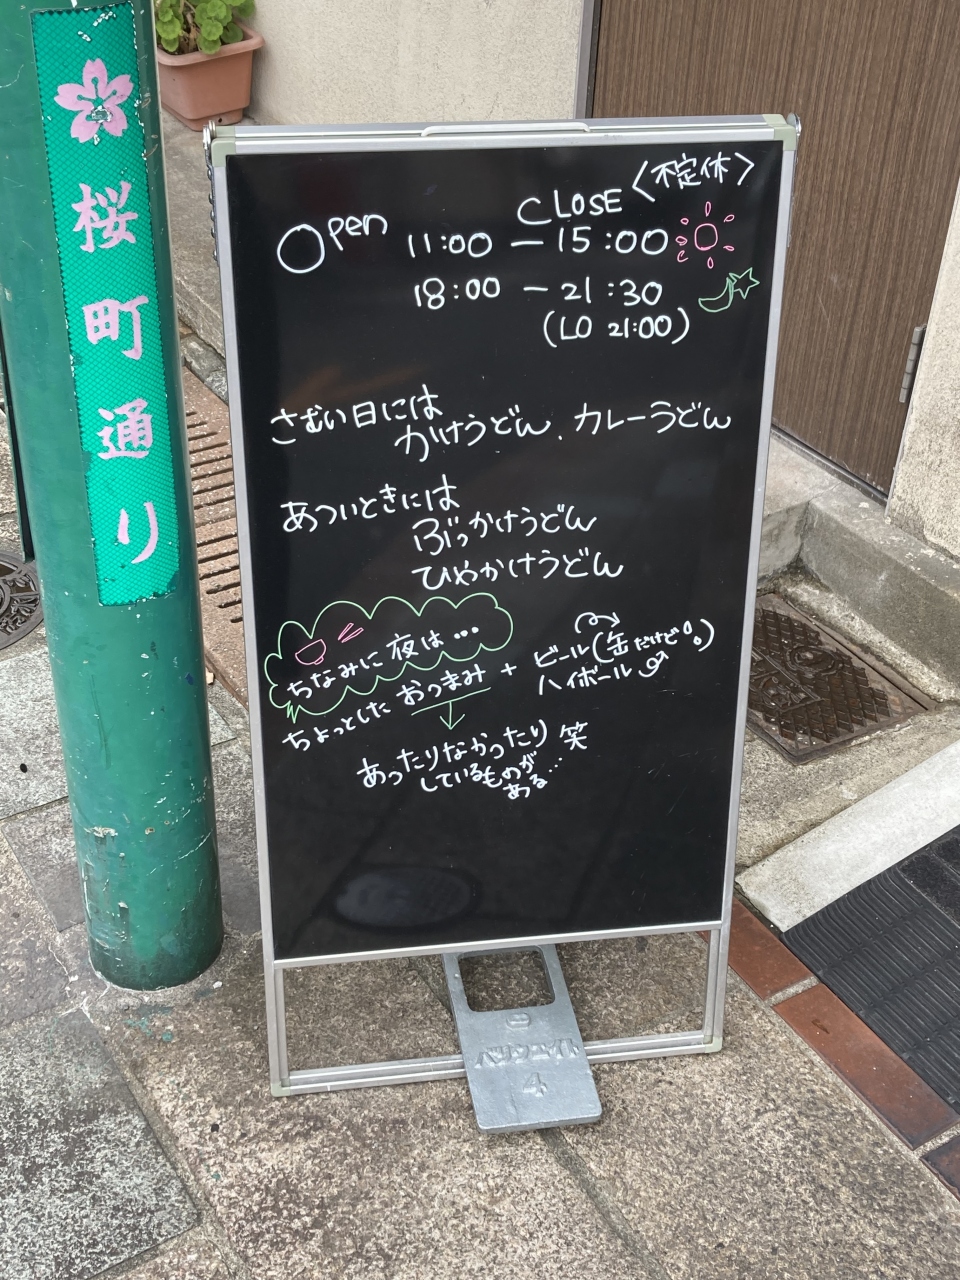 桜町通り
CLOSE 〈不定休〉
Open 11:00 — 15:00
18:00 — 21:30
(LO 21:00)
さむい日には
かけうどん、カレーうどん
あついときには
ぶっかけうどん
ひやかけうどん
ちなみに夜は…
ちょっとした おつまみ + ビール(缶だけど。)
ハイボール
あったりなかったり 笑
しているものが
ある…
B
ベツウエイト
4